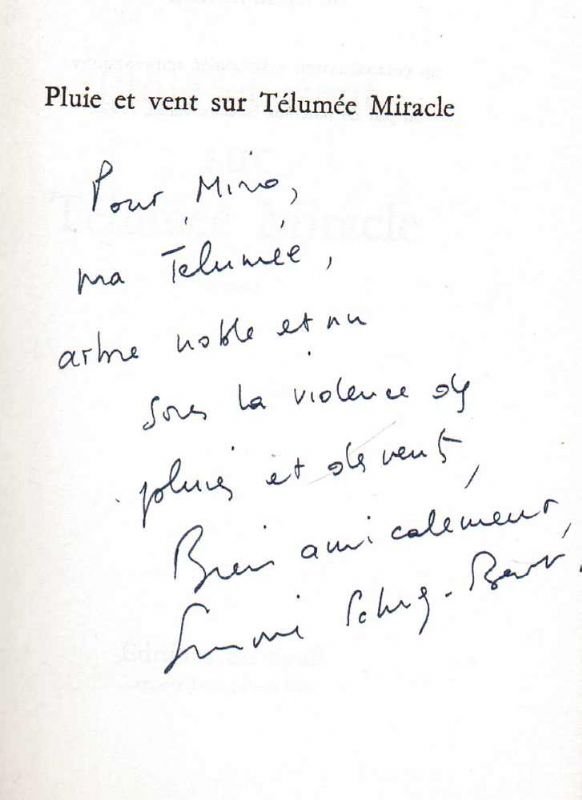 Pluie et vent sur Télumée Miracle
Pour Mino,
ma Télumée,
arbre noble et nu
sous la violence des
pluies et des vents,
Bien amicalement,
Simone Schwarz-Bart.